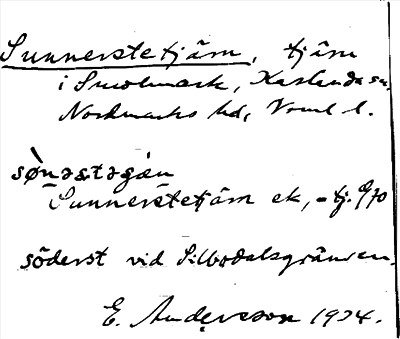 Sunnerstetjärn, tjärn
i Smolmark, Karlanda sn,
Nordmarks hd, Vrml l.
sø̀nəstəɕæ̀n
Sunnerstetjärn ek, -tj. 9/70
söderst vid Silbodalsgränsen.
E. Andersson 1934.